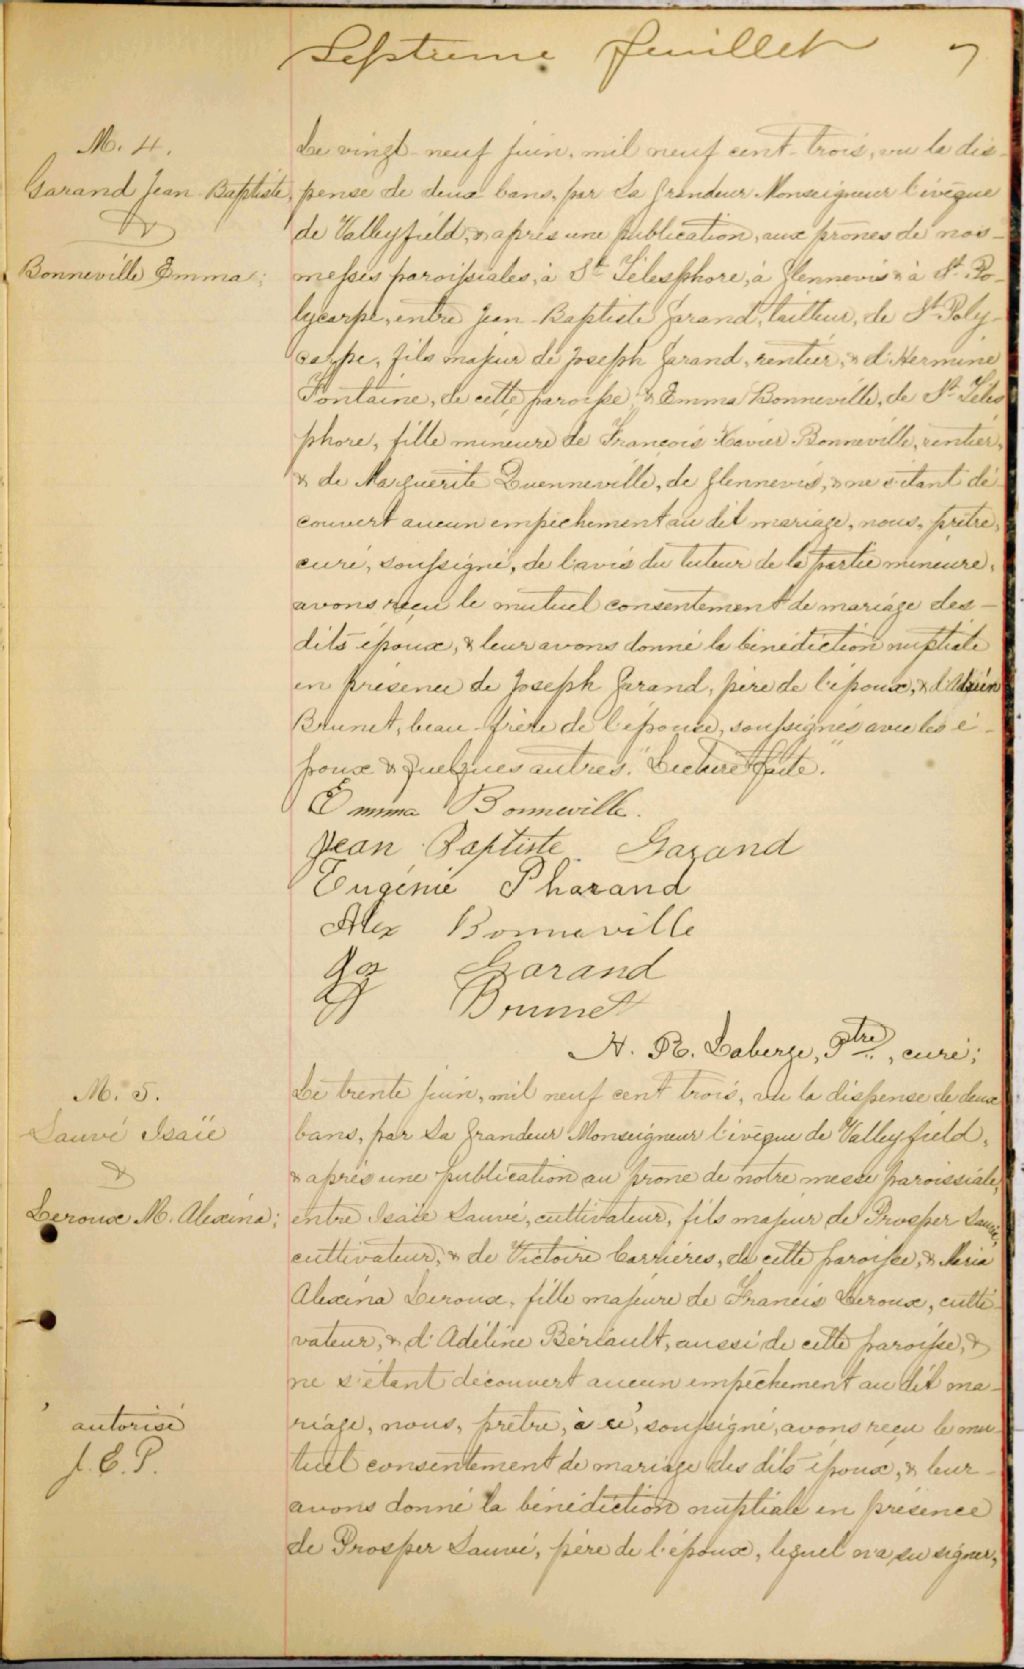 Septieme feuillet 7
M. 4.
Garand Jean Baptiste,
&
Bonneville Emma;
Le vingt-neuf juin, mil neuf cent-trois, vu la dis-
pense de deux bans, par Sa Grandeur Monseigneur l'évêque
de Valleyfield, & après une publication, aux prônes de nos-
messes paroissiales, à St Télesphore, à Glennevis & à St Po-
lycarpe, entre Jean-Baptiste Garand, tailleur, de St Poly-
carpe, fils majeur de Joseph Garand, rentier, & d'Hermine
Fontaine, de cette paroisse, & Emma Bonneville, de St Téles
phore, fille mineure de François Xavier Bonneville, rentier,
& de Marguerite Quenneville, de Glennevis, & ne s'étant dé-
couvert aucun empêchement au dit mariage, nous, prêtre,
curé, soussigné, de l'avis du tuteur de la partie mineure,
avons reçu le mutuel consentement de mariage des-
dits époux, & leur avons donné la bénédiction nuptiale
en présence de Joseph Garand, père de l'époux, & d'
Brunet, beau-frère de l'épouse, soussignés avec les é-
poux & quelques autres. "Lecture faite."
Emma Bonneville.
Jean Baptiste Garand
Eugénie Pharand
Alex Bonneville
Jos Garand
A Brunet
H. R. Laberge, Ptre, curé;
M. 5.
Sauvé Isaïe
&
Leroux M. Alexina;
Le trente juin, mil neuf cent trois, vu la dispense de deux
bans, par Sa Grandeur Monseigneur l'évêque de Valleyfield,
& après une publication au prône de notre messe paroissiale,
entre Isaïe Sauvé, cultivateur, fils majeur de Prosper Sauvé,
cultivateur, & de Victoire Carrières, de cette paroisse, & Marie
Alexina Leroux, fille majeure de Francis Leroux, culti-
vateur, & d'Adéline Bériault, aussi de cette paroisse, &
ne s'étant découvert aucun empêchement au dit ma-
riage, nous, prêtre, à ce, soussigné, avons reçu le mu-
tuel consentement de mariage des dits époux, & leur-
avons donné la bénédiction nuptiale en présence
de Prosper Sauvé, père de l'époux, lequel n'a su signer,
autorisé
J. E. P.